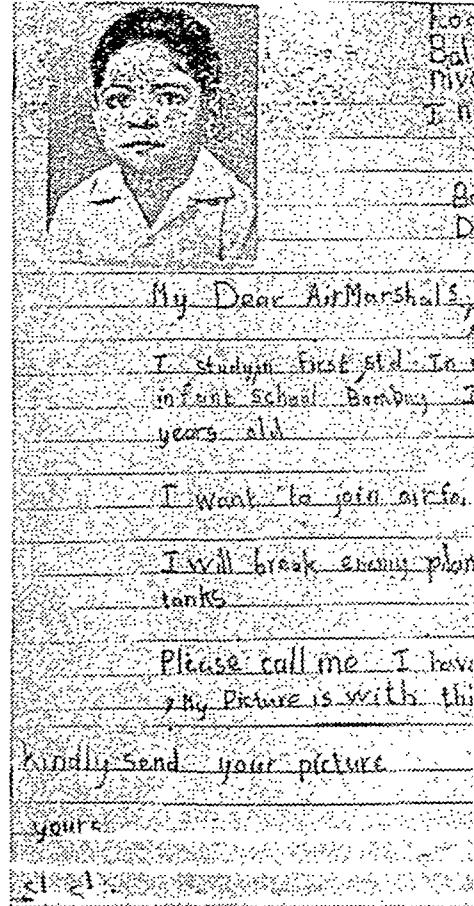 My Dear AirMarshals,
I study in first std. In
infant school Bombay I
years old
I want to join airfo
I will break enemy plan
tanks
Please call me I hav
, My Picture is with thi
Kindly send your picture
yours